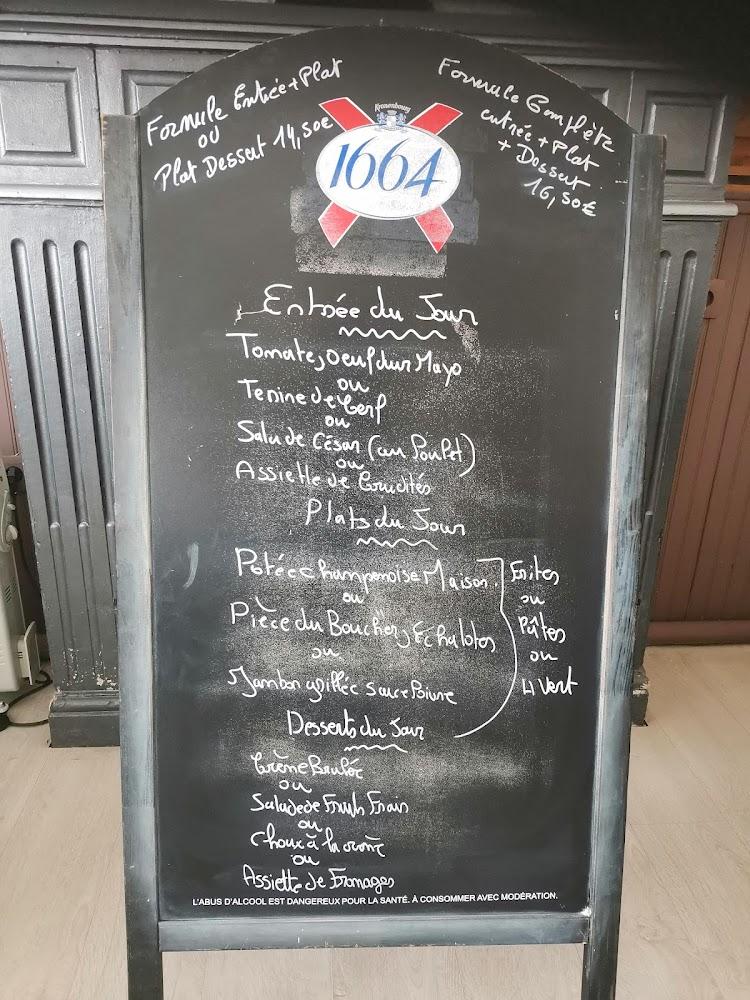 Formule Entrée + Plat
ou
Plat Dessert 14,50€
Formule Complète
entrée + Plat
+ Dessert
16,50€
Kronenbourg
1664
Entrée du Jour
Tomates, Oeuf dur Mayo
ou
Terrine de Cerf
ou
Salade César (au Poulet)
ou
Assiette de Crudités
Plats du Jour
Potée champenoise Maison.
ou
Pièce du Boucher, Echalotes
ou
Jambon grillée sauce Poivre
Frites
ou
Pâtes
ou
H Vert
Desserts du Jour
Crème Brulée
ou
Salade de Fruits Frais
ou
Choux à la crème
ou
Assiette de Fromages
L'ABUS D'ALCOOL EST DANGEREUX POUR LA SANTÉ. À CONSOMMER AVEC MODÉRATION.